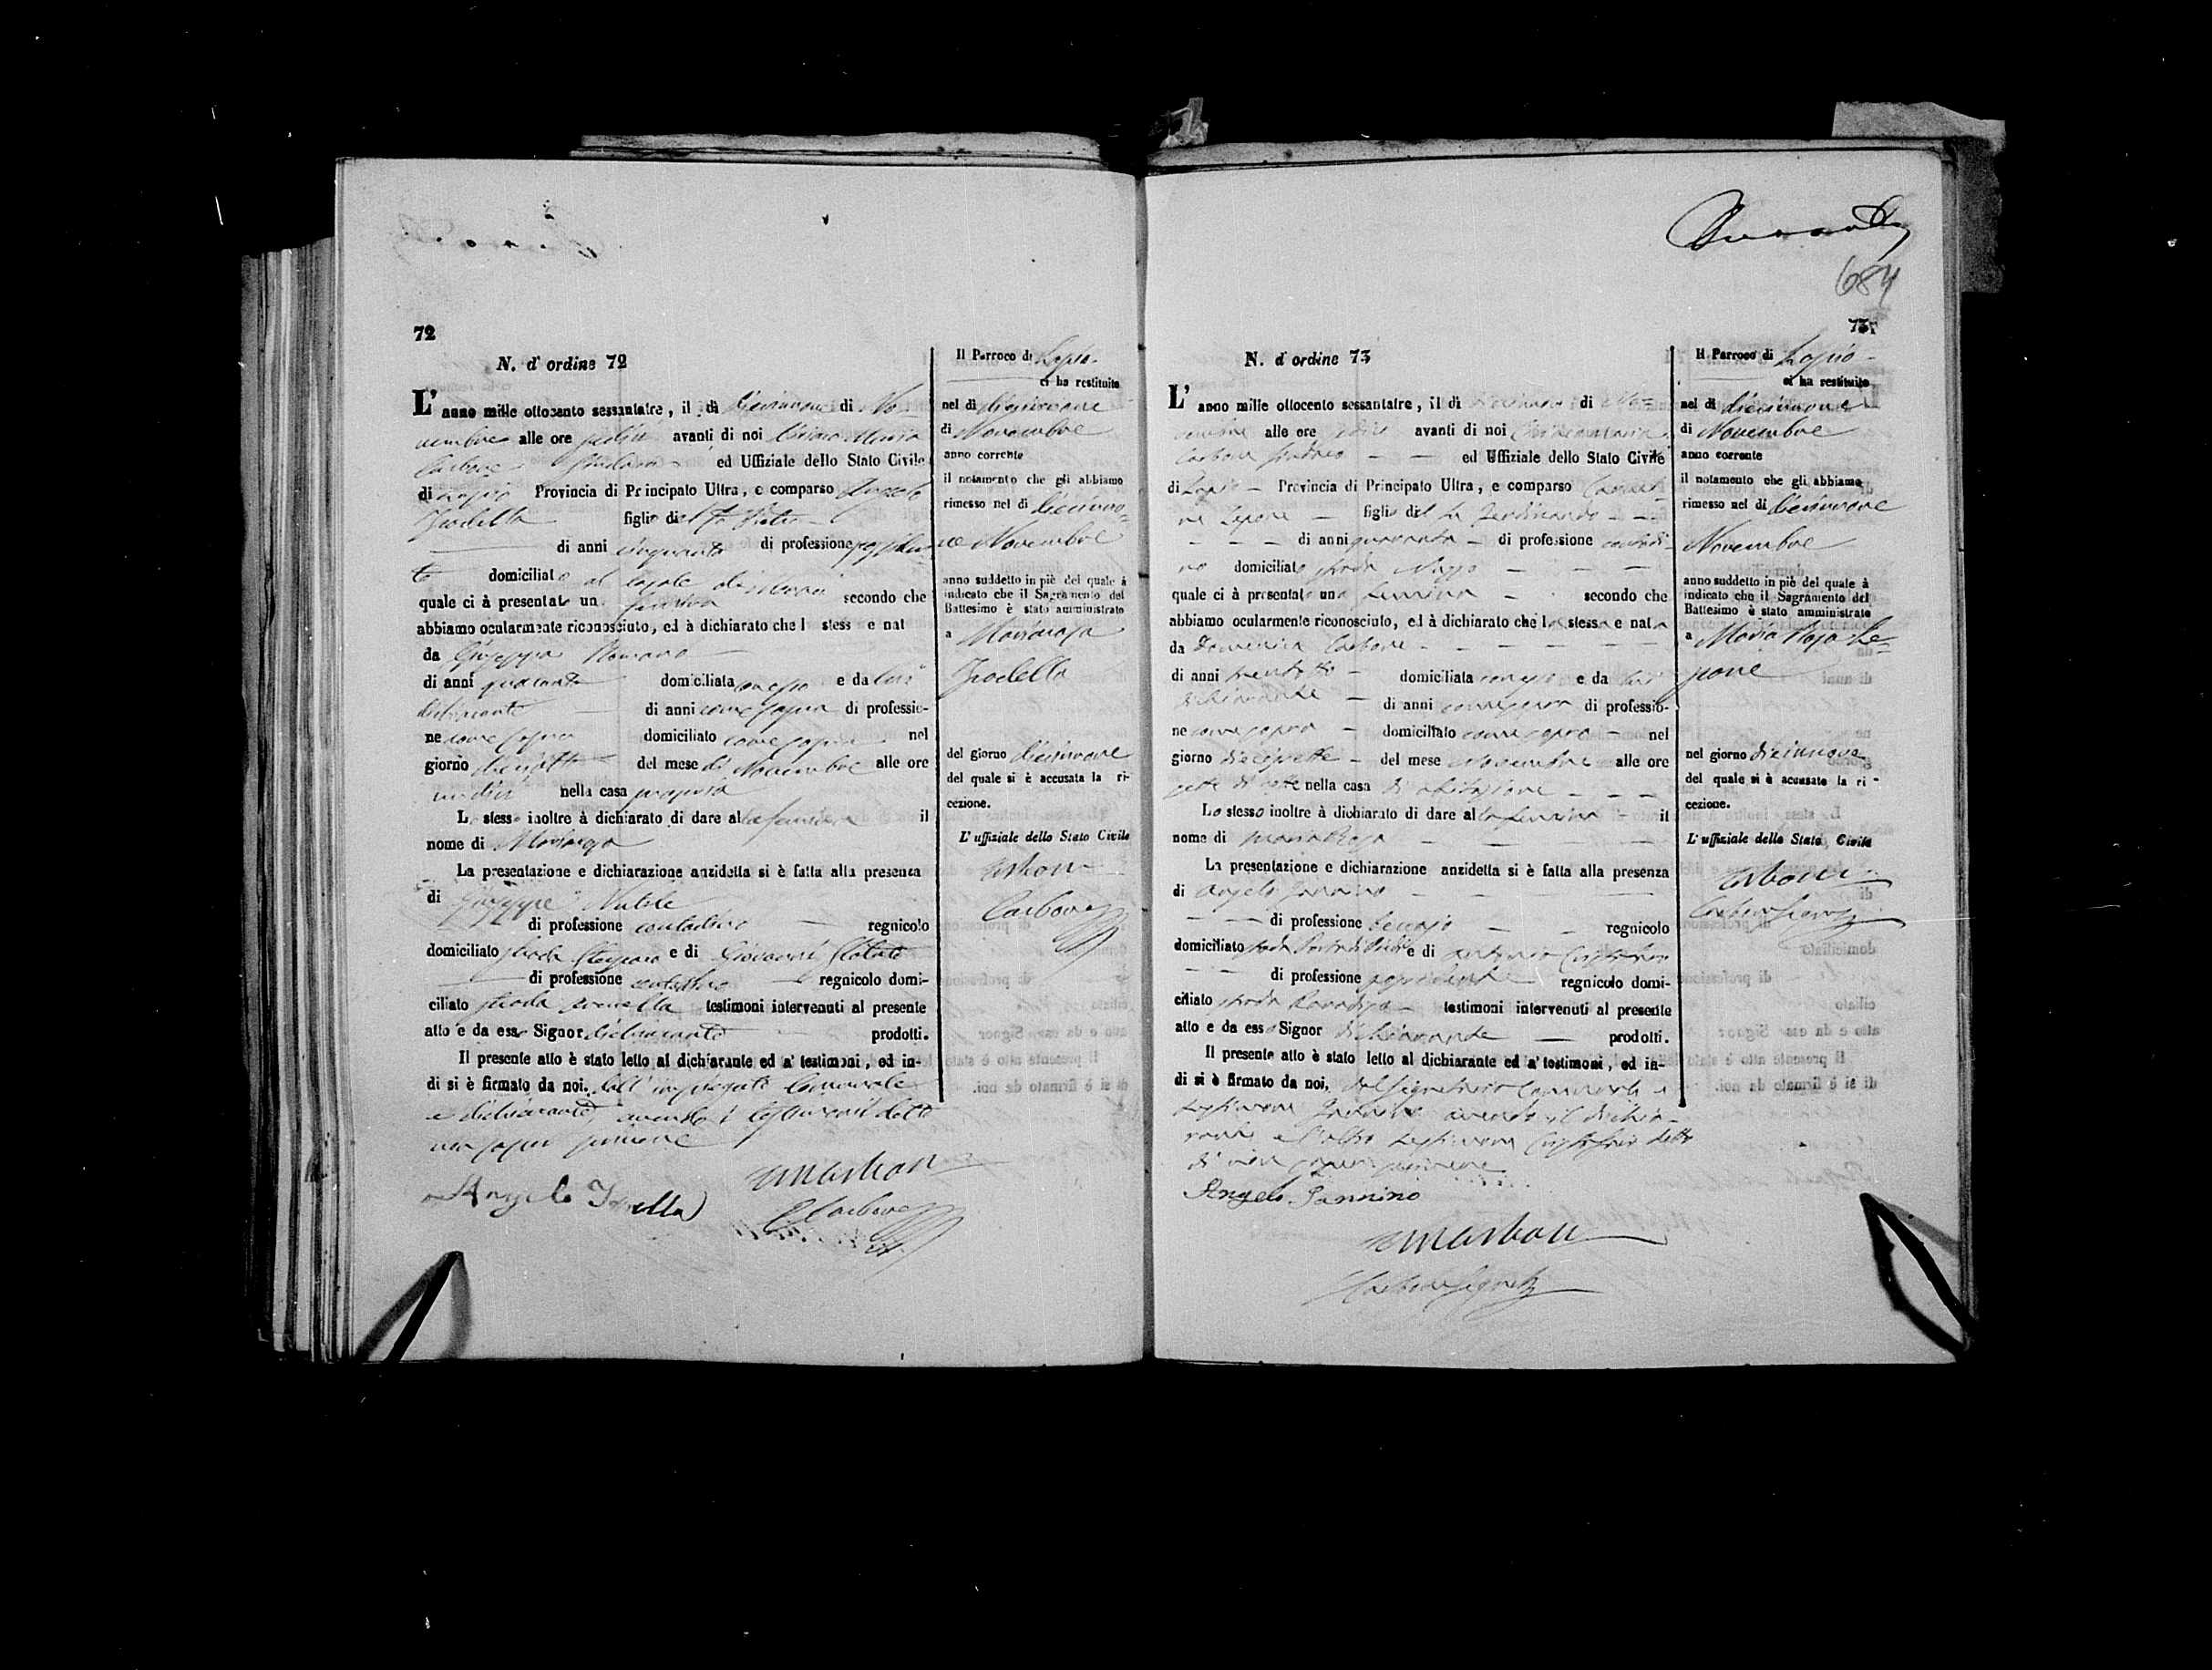 72
N. d' ordine 72
L' anno mille ottocento sessantatre, il dì diecinnove di No-
vembre alle ore sedici avanti di noi Ciriaco Maria
Carbone Sindaco ed Uffiziale dello Stato Civile
di Lapio Provincia di Principato Ultra, e comparso Angelo
figlio del fu
di anni cinquanta di professione
domiciliato al casale di
quale ci à presentato una secondo che
abbiamo ocularmente riconosciuto, ed à dichiarato che l stess e nat
da Giuseppa Romano
di anni quaranta domiciliata con esso e da lui
dichiarante di anni come sopra di professio-
ne come sopra domiciliato come sopra nel
giorno del mese di Novembre alle ore
undici nella casa propria
Lo stesso inoltre à dichiarato di dare alla il
nome di Mariarosa
La presentazione e dichiarazione anzidetta si è fatta alla presenza
di Giuseppe Nubile
di professione contadino regnicolo
domiciliato strada e di Giovanni
di professione contadino regnicolo domi-
ciliato strada testimoni intervenuti al presente
atto e da esso Signor dichiarante prodotti.
Il presente atto è stato letto al dichiarante ed a' testimoni, ed in-
di si è firmato da noi, dall' impiegato Comunale
e dichiarante, avendo i testimoni detto
non saper scrivere
Angelo
Carbone
Il Parroco di Lapio
ci ha restituito
nel dì diecinnove
di Novembre
anno corrente
il notamento che gli abbiamo
rimesso nel dì diecinno-
ve Novembre
anno suddetto in piè del quale à
indicato che il Sagramento del
Battesimo è stato amministrato
a Mariarosa
del giorno diecinnove
del quale si è accusata la ri-
cezione.
L' uffiziale dello Stato Civile
Carbone
684
73
N. d' ordine 73
L' anno mille ottocento sessantatre, il dì diecinnove di No-
vembre alle ore sedici avanti di noi Ciriaco Maria
Carbone Sindaco ed Uffiziale dello Stato Civile
di Lapio Provincia di Principato Ultra, e comparso Carmi-
ne Lepore figlio del fu Ferdinando
di anni quaranta di professione contadi-
no domiciliato strada
quale ci à presentato una femina secondo che
abbiamo ocularmente riconosciuto, ed à dichiarato che la stessa e nata
da Domenica Carbone
di anni trentotto domiciliata con esso e da lui
dichiarante di anni come sopra di professio-
ne come sopra domiciliato come sopra nel
giorno diecisette del mese Novembre alle ore
sette di notte nella casa di abitazione
Lo stesso inoltre à dichiarato di dare alla femina il
nome di Maria Rosa
La presentazione e dichiarazione anzidetta si è fatta alla presenza
di Angelo Jannino
di professione regnicolo
domiciliato strada e di Antonio
di professione regnicolo domi-
ciliato strada testimoni intervenuti al presente
atto e da esso Signor dichiarante prodotti.
Il presente atto è stato letto al dichiarante ed a' testimoni, ed in-
di si è firmato da noi, dal Segretario Comunale e
testimone Jannino avendo il dichia-
rante e l'altro testimone detto
di non sapere scrivere
Angelo Jannino
Il Parroco di Lapio
ci ha restituito
nel dì diecinnove
di Novembre
anno corrente
il notamento che gli abbiamo
rimesso nel dì diecinnove
Novembre
anno suddetto in piè del quale à
indicato che il Sagramento del
Battesimo è stato amministrato
a Maria Rosa Le-
pore
nel giorno diecinnove
del quale si è accusato la ri-
cezione.
L' uffiziale dello Stato Civile